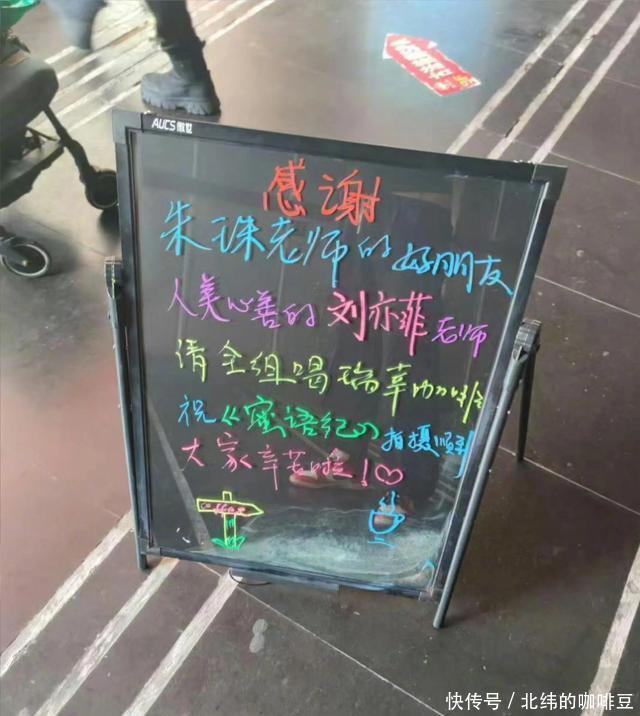 AUCS
感谢
朱珠老师的好朋友
人美心善的刘亦菲老师
请全组喝瑞幸咖啡
祝《蜜语纪》拍摄顺利
大家辛苦啦!♡
快传号/北纬的咖啡豆